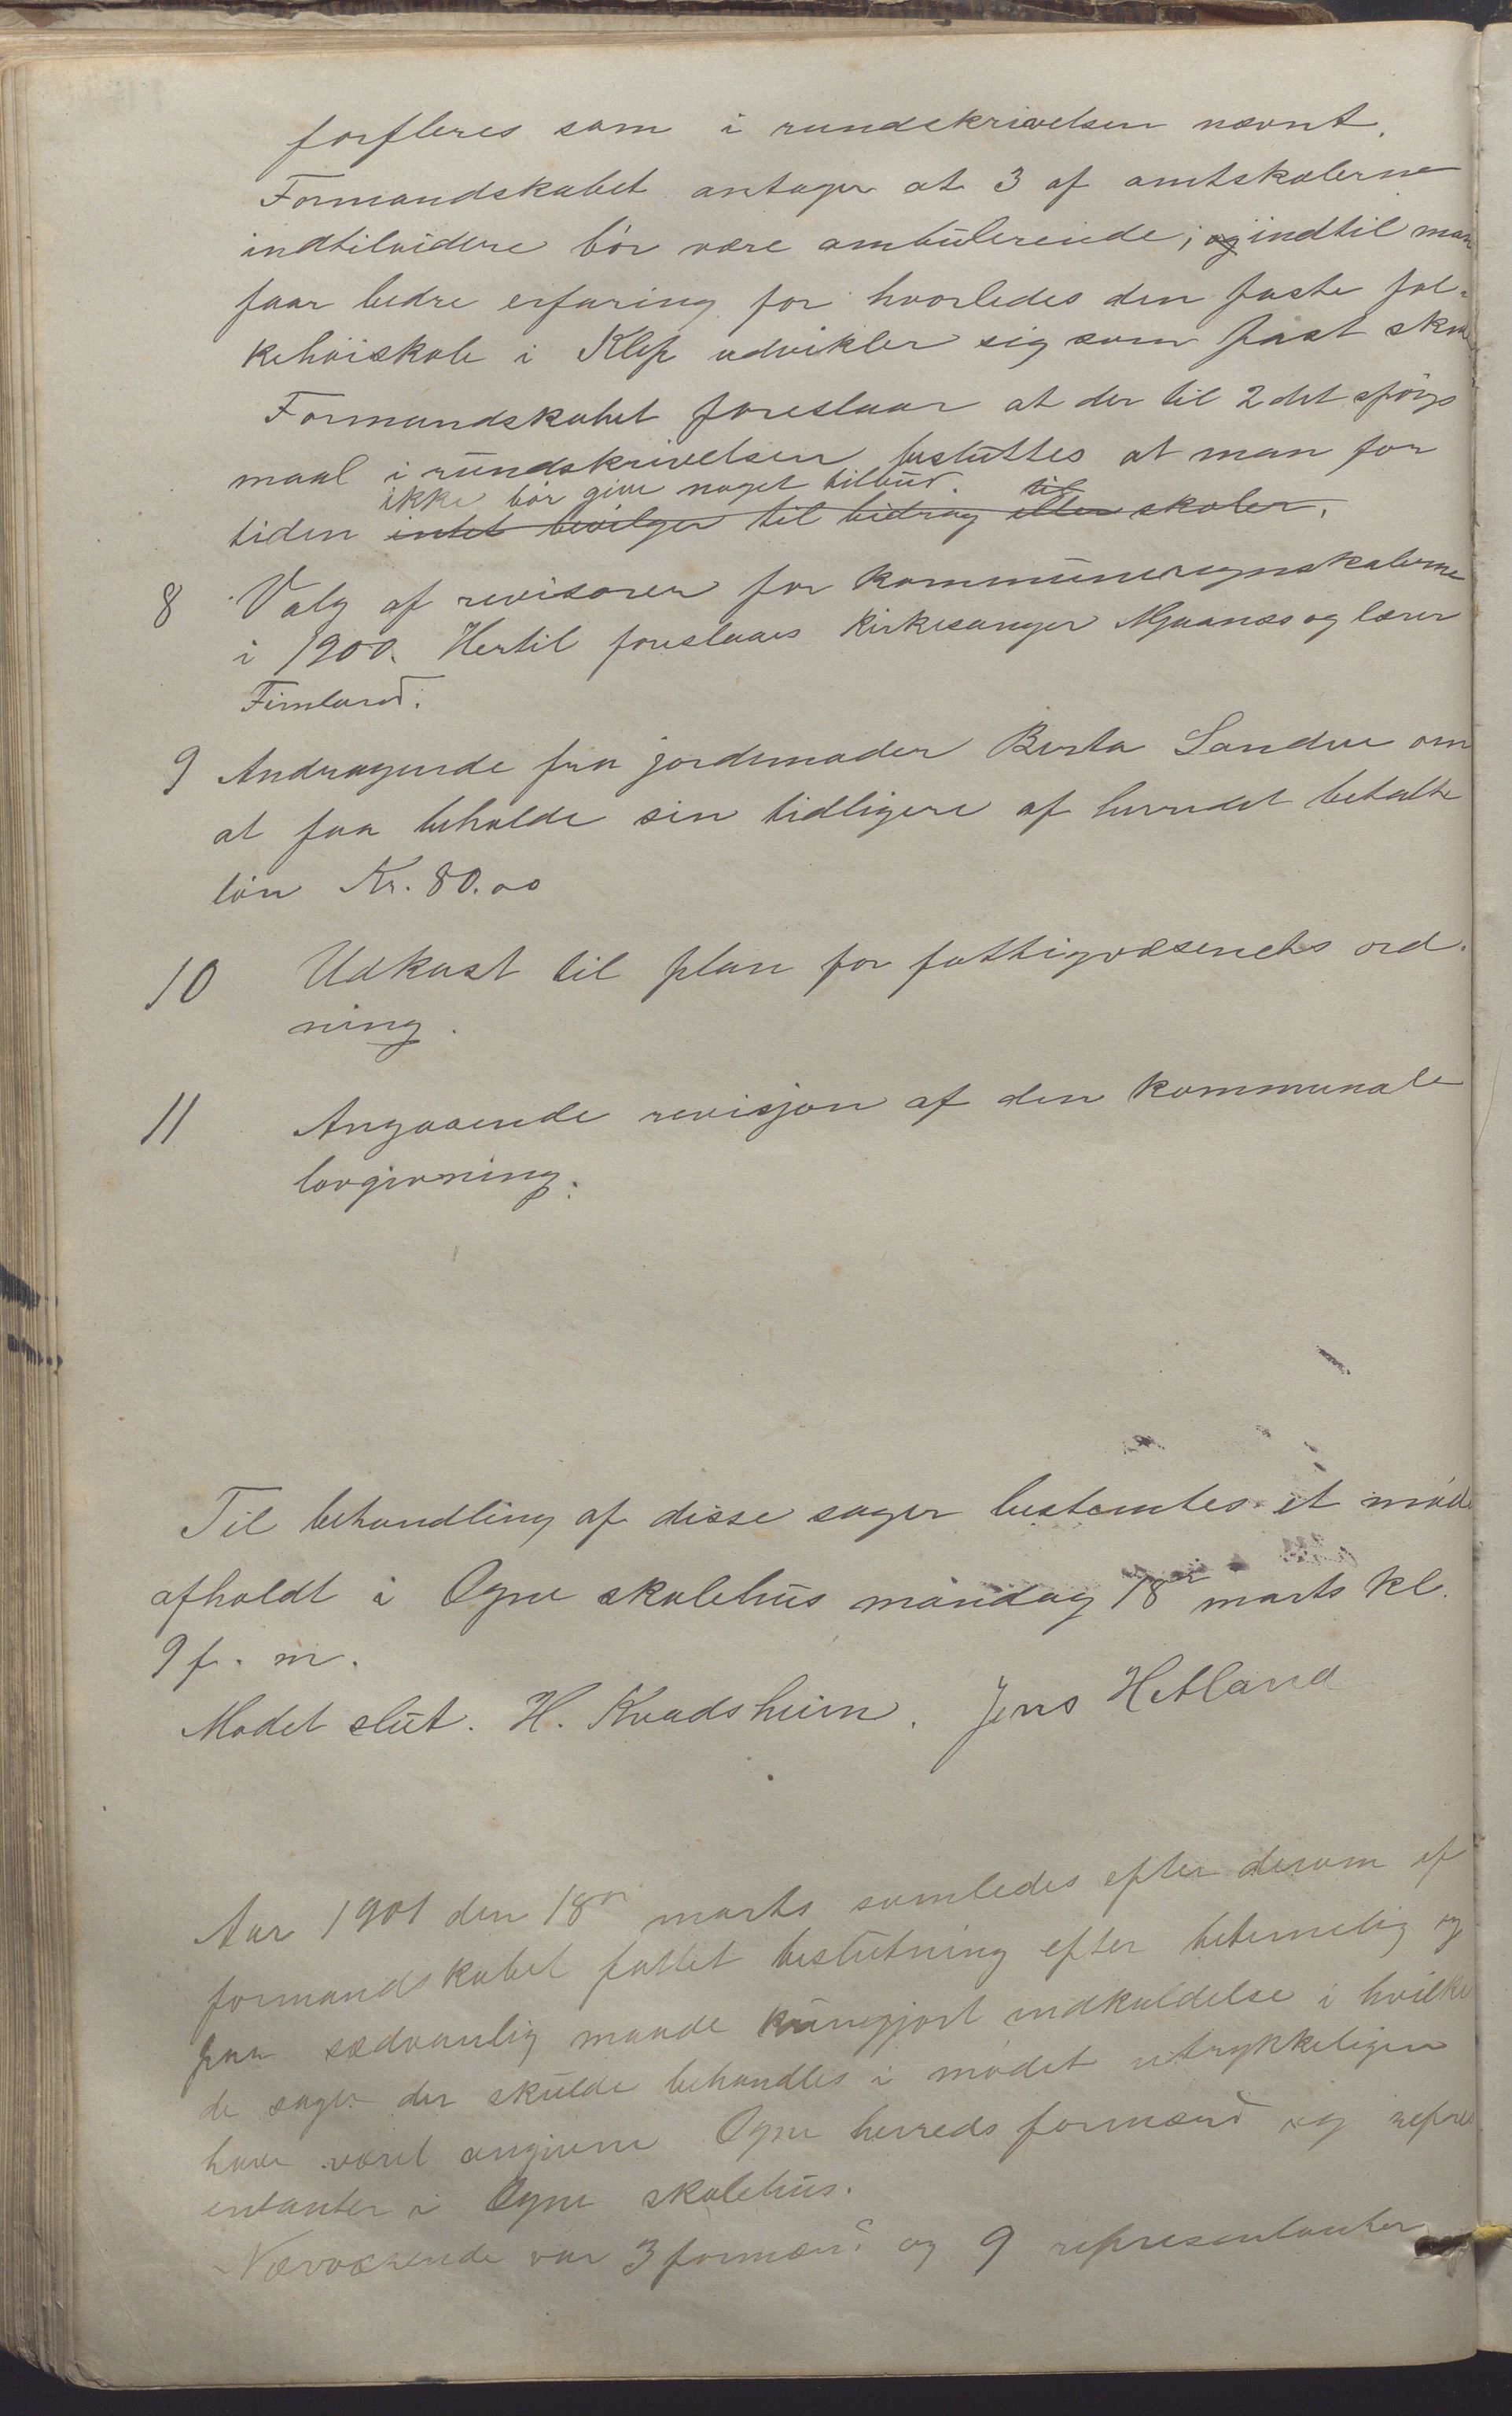 forfleres som i rundskrivelsen nævnt.
Formandskabet antager at 3 af amtskolerne
indtilvidere bör være ambulerende; og indtil man
faar bedre erfaring for hvorledes den faste fol-
kehöiskole i Klep udvikler sig som fast skole
Formandskabet foreslaar at der til 2det spörgs
maal i rundskrivelsen besluttes at man for
ikke bör give noget tilbud. til
tiden intet bevilger til bidrag eller skoler.
8 Valg af revisorer for kommuneregnskaberne
i 1900. Hertil foreslaaes Kirkesanger Mjaanes og lærer
Fimland.
9 Andragende fra jordemoder Berta Sandve om
at faa beholde sin tidligere af herredet betalte
lön Kr. 80.00
10 Udkast til plan for fattigvæsenets ord-
ning.
11 Angaaende revisjon af den kommunale
lovgivning.
Til behandling af disse sager bestemtes et möde
afholdt i Ogne skolehus mandag 18de marts kl.
9 f. m.
Mödet slut. H. Kvadsheim. Jens Hetland
Aar 1901 den 18de marts samledes efter derom af
formandskabet fattet beslutning efter betimelig og
paa sædvanlig maade kungjort indkaldelse i hvilke
de sager der skulde behandles i mödet utrykkeligen
have været angivne Ogne herreds formænd og repræs
entanter i Ogne skolehus.
Nærværende var 3 formænd og 9 representanter